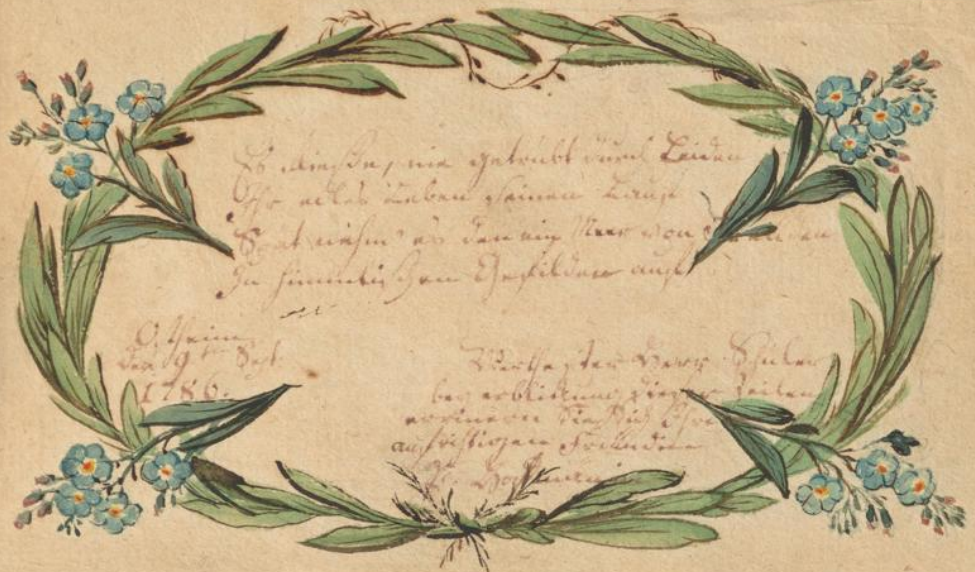 Es fließe, nie getrübt durch Leiden
Ihr edles Leben seinen Lauf
Spät nehm' es den ein Meer von Freuden
In himmlischen Gefilden auf
den 9ten Sept.
1786.
Werthester Herr
bey erblickung dieser Zeilen
erinnern Sie Sich Ihre
aufrichtigen Freundin